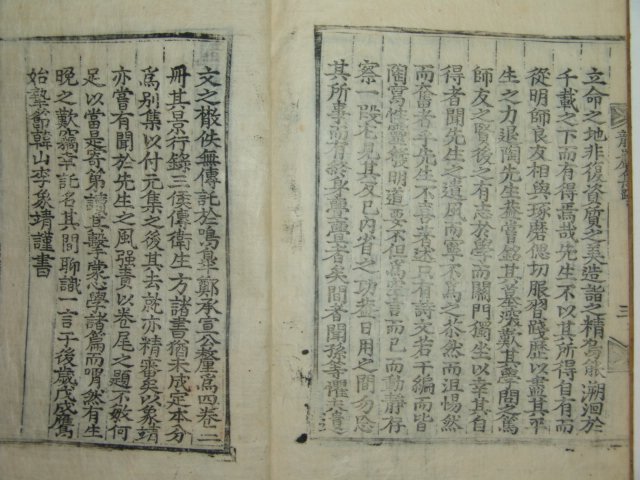 立命之地非復資質之美造詣之精烏能溯洄於
千載之下而有得焉哉先生不以其所得自有而
從明師良友相與琢磨偲切服習踐歷以盡其平
生之力退陶先生盖嘗銘其墓深歎其學問之篤
師友之賢後之有志於學而關門獨坐以幸其自
得者聞先生之遺風而寧不爲之於然而沮惕然
而奮者乎先生不喜著述只有詩文若干編而皆
陶寫性靈發明道要不但寓言而已而動靜存
察一段尤見其反已內省之功盖日用之間勿忘
其所事而有終身
者矣間者聞孫
文之橃佚無傳託於鳴
鄭承宣公釐爲四卷二
冊其景行錄三侯傳衛生方諸書猶未成定本分
爲別集以付元集之後其去就亦精審矣以象靖
亦嘗有聞於先生之風强責以卷尾之題不敏何
足以當是寄第讀其擊蒙愈學諸篇而喟然有生
晚之歎竊幸託名其間聊識一言于後歲戊戌
始
節韓山李象靖謹書